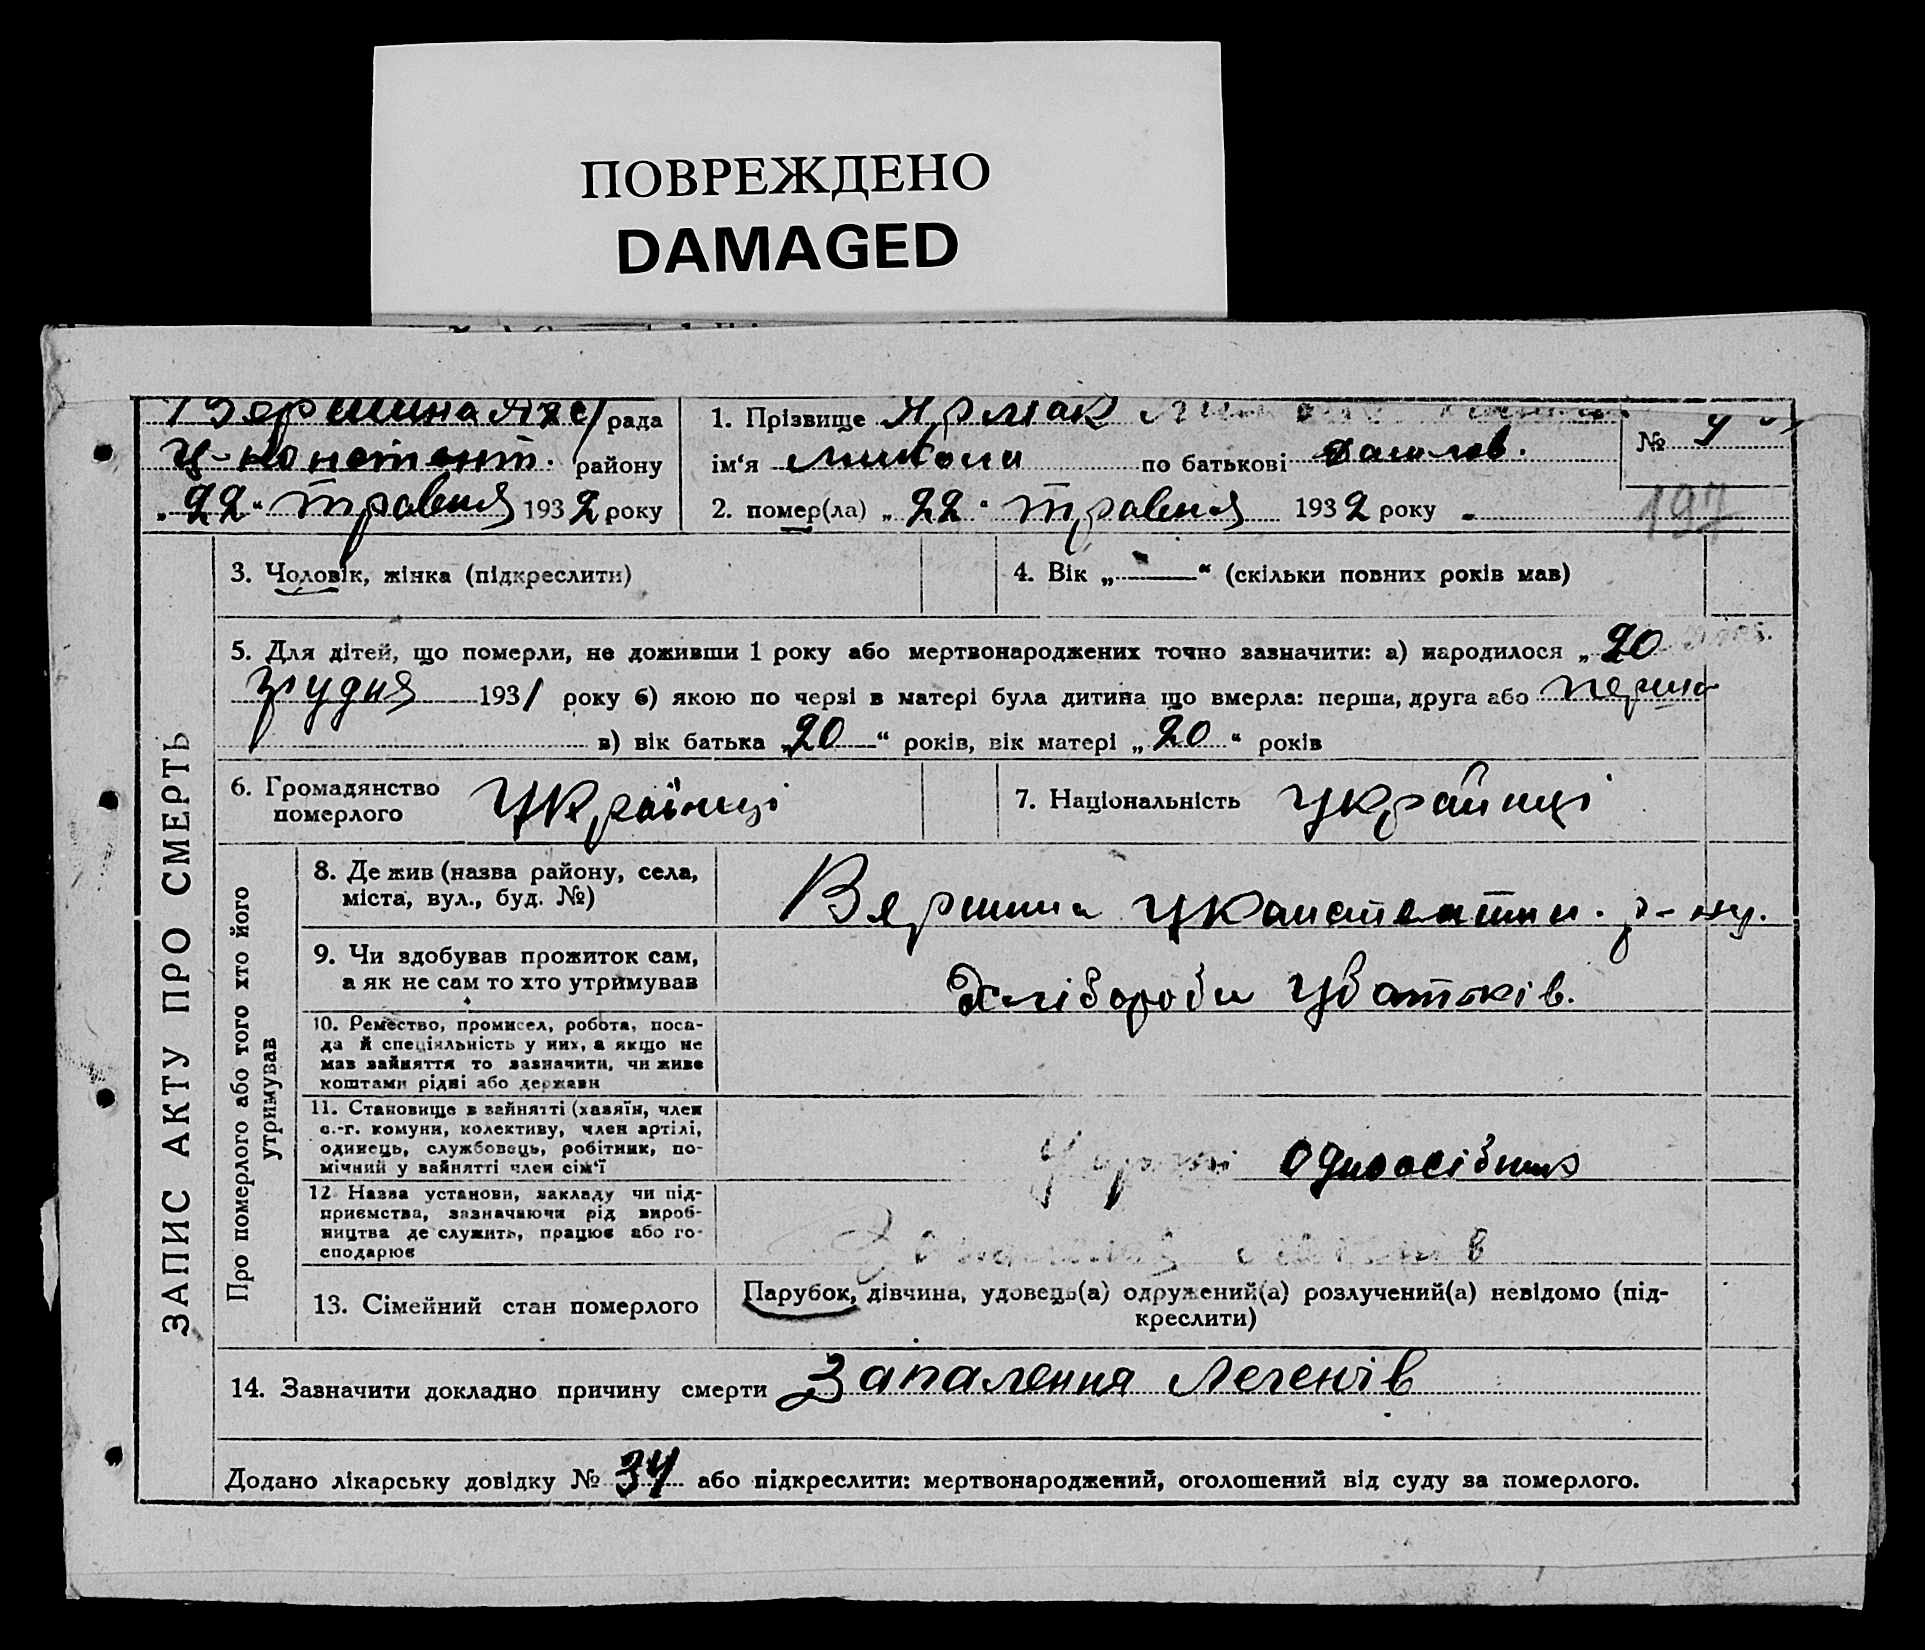 ПОВРЕЖДЕНО
DAMAGED
рада
району
„22“ травня 1932 року
1. Прізвище Ярмак
ім‘я Микола по батькові
2. помер(ла) „22“ травня 1932 року
№
197
ЗАПИС АКТУ ПРО СМЕРТЬ
3. Чоловік, жінка (підкреслити)
4. Вік „—“ (скільки повних років мав)
5. Для дітей, що померли, не доживши 1 року або мертвонароджених точно зазначити: а) народилося „20
грудня 1931 року б) якою по черзі в матері була дитина що вмерла: перша, друга або перша
в) вік батька „20“ років, вік матері „20“ років
6. Громадянство
померлого
Українці
7. Національність Українці
Про померлого або того хто його
утримував
8. Де жив (назва району, села,
міста, вул., буд. №)
9. Чи здобував прожиток сам,
а як не сам то хто утримував
Хлібороби У батьків.
10. Ремество, промисел, робота, поса-
да й спеціяльність у них, а якщо не
мав зайняття то зазначити, чи живе
коштами рідні або держави
11. Становище в зайнятті (хазяїн, член
с.-г. комуни, колективу, член артілі,
одинець, службовець, робітник, по-
мічний у зайнятті член сім‘ї
одноосібник
12. Назва установи, закладу чи під-
приємства, зазначаючи рід вироб-
ництва де служить, працює або го-
сподарює
13. Сімейний стан померлого
Парубок, дівчина, удовець(а) одружений(а) розлучений(а) невідомо (під-
креслити)
14. Зазначити докладно причину смерти Запалення Легенів
Додано лікарську довідку № 34 або підкреслити: мертвонароджений, оголошений від суду за померлого.